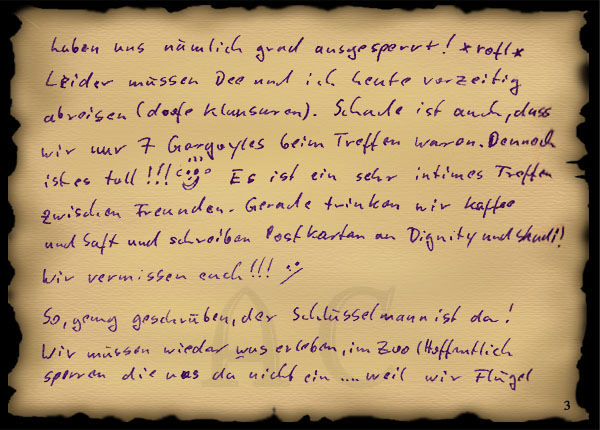 haben uns nämlich grad ausgesperrt! *rofl*
Leider müssen Dee und ich heute vorzeitig
abreisen (doofe Klausuren). Schade ist auch, dass
wir nur 7 Gargoyles beim Treffen waren. Dennoch
ist es toll!!! Es ist ein sehr intimes Treffen
zwischen Freunden. Gerade trinken wir Kaffee
und Saft und schreiben Postkarten an Dignity und Shadi!
Wir vermissen euch!!! :)
So, genug geschrieben, der Schlüsselmann ist da!
Wir müssen wieder was erleben, im Zoo (Hoffentlich
sperren die uns da nicht ein .... weil wir Flügel
3
AC